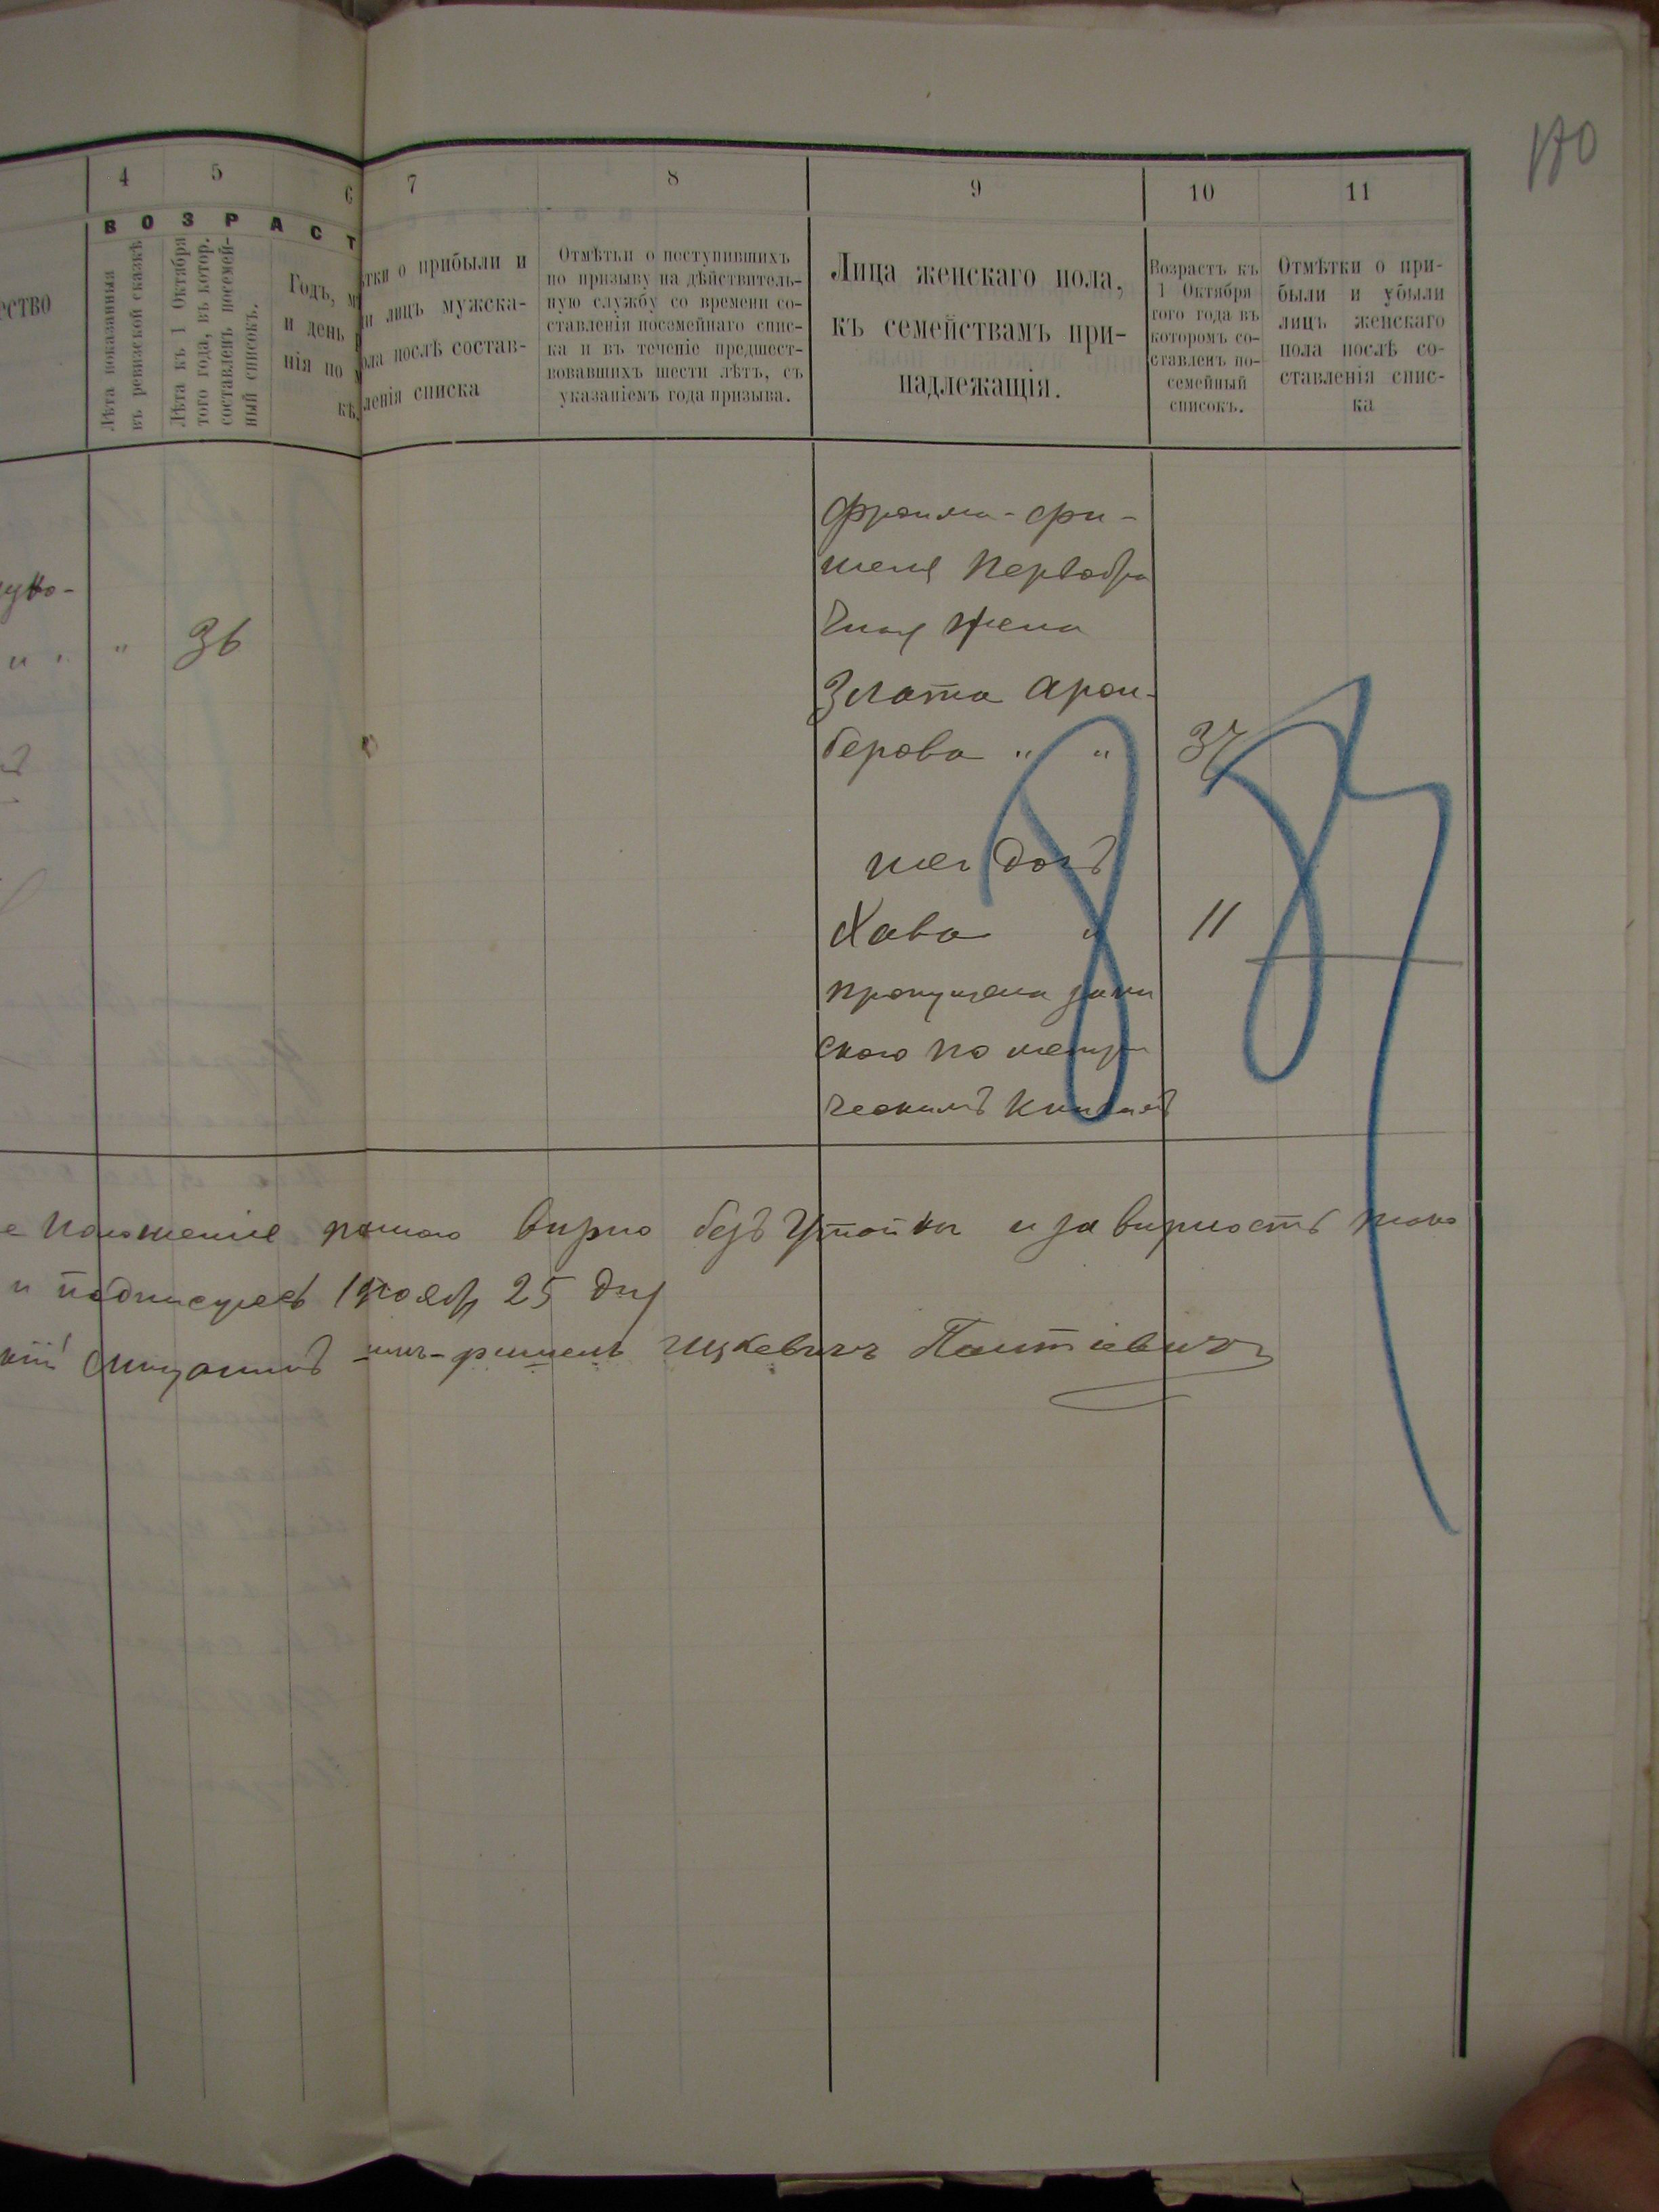 170
4 5 6 7 8 9 10 11
ВОЗРАСТ
ество
Лѣта показанныя
въ ревизской сказкѣ
Лѣта къ 1 Октября
того года, въ котор.
составленъ посемей-
ный списокъ.
Годъ, м
и день
нія по м
кѣ.
тки о прибыли и
и лицъ мужска-
ола послѣ состав-
ленія списка
Отмѣтки о поступившихъ
по призыву на дѣйствитель-
ную службу со времени со-
ставленія посемейнаго спис-
ка и въ теченіе предшест-
вовавшихъ шести лѣтъ, съ
указаніемъ года призыва.
Лица женскаго пола,
къ семействамъ при-
надлежащія.
Возрастъ къ
1 Октября
того года въ
которомъ со-
ставленъ по-
семейный
списокъ.
Отмѣтки о при-
были и убыли
лицъ женскаго
пола послѣ со-
ставленія спис-
ка
Фроима-фи-
шеля Первобра
чная жена
" 36
Злата Арон-
берова " " 37
Хава " 11
пропущена
скою по метри
ческимъ книгамъ
положеніе вирно безъ Утайки и за вирность
и подписуесъ Ноябр 25 дня
Ицкевичъ